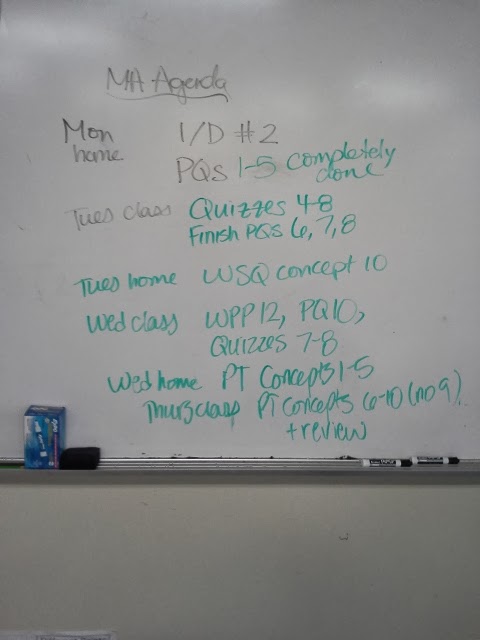 MA Agenda
Mon home I/D #2
PQs 1-5 completely done
Tues class Quizzes 4-8
Finish PQs 6, 7, 8
Tues home WSQ concept 10
Wed class WPP 12, PQ 10,
Quizzes 7-8
Wed home PT Concepts 1-5
Thurs class PT concepts 6-10 (no 9)
+ review